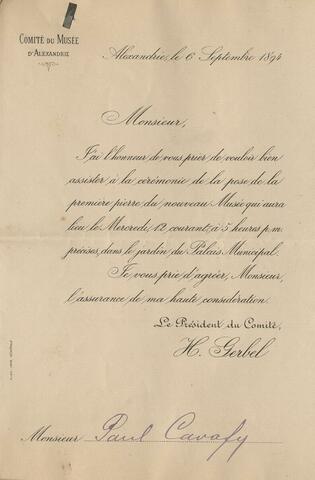 COMITÉ DU MUSÉE
D'ALEXANDRIE
Alexandrie, le 6 Septembre 1894
Monsieur,
J'ai l'honneur de vous prier de vouloir bien
assister à la cérémonie de la pose de la
première pierre du nouveau Musée qui aura
lieu le Mercredi, 12 courant, à 5 heures p. m.
précises, dans le jardin du Palais Municipal.
Je vous prie d'agréer, Monsieur,
l'assurance de ma haute considération.
Le Président du Comité,
H. Gerbel
Monsieur Paul Cavafy